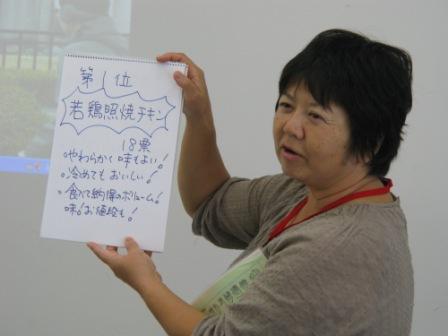 第1位
若鶏照焼チキン
18票
・やわらかく味もよい!
・冷めてもおいしい!
・食べて納得のボリューム!
味!お値段も!